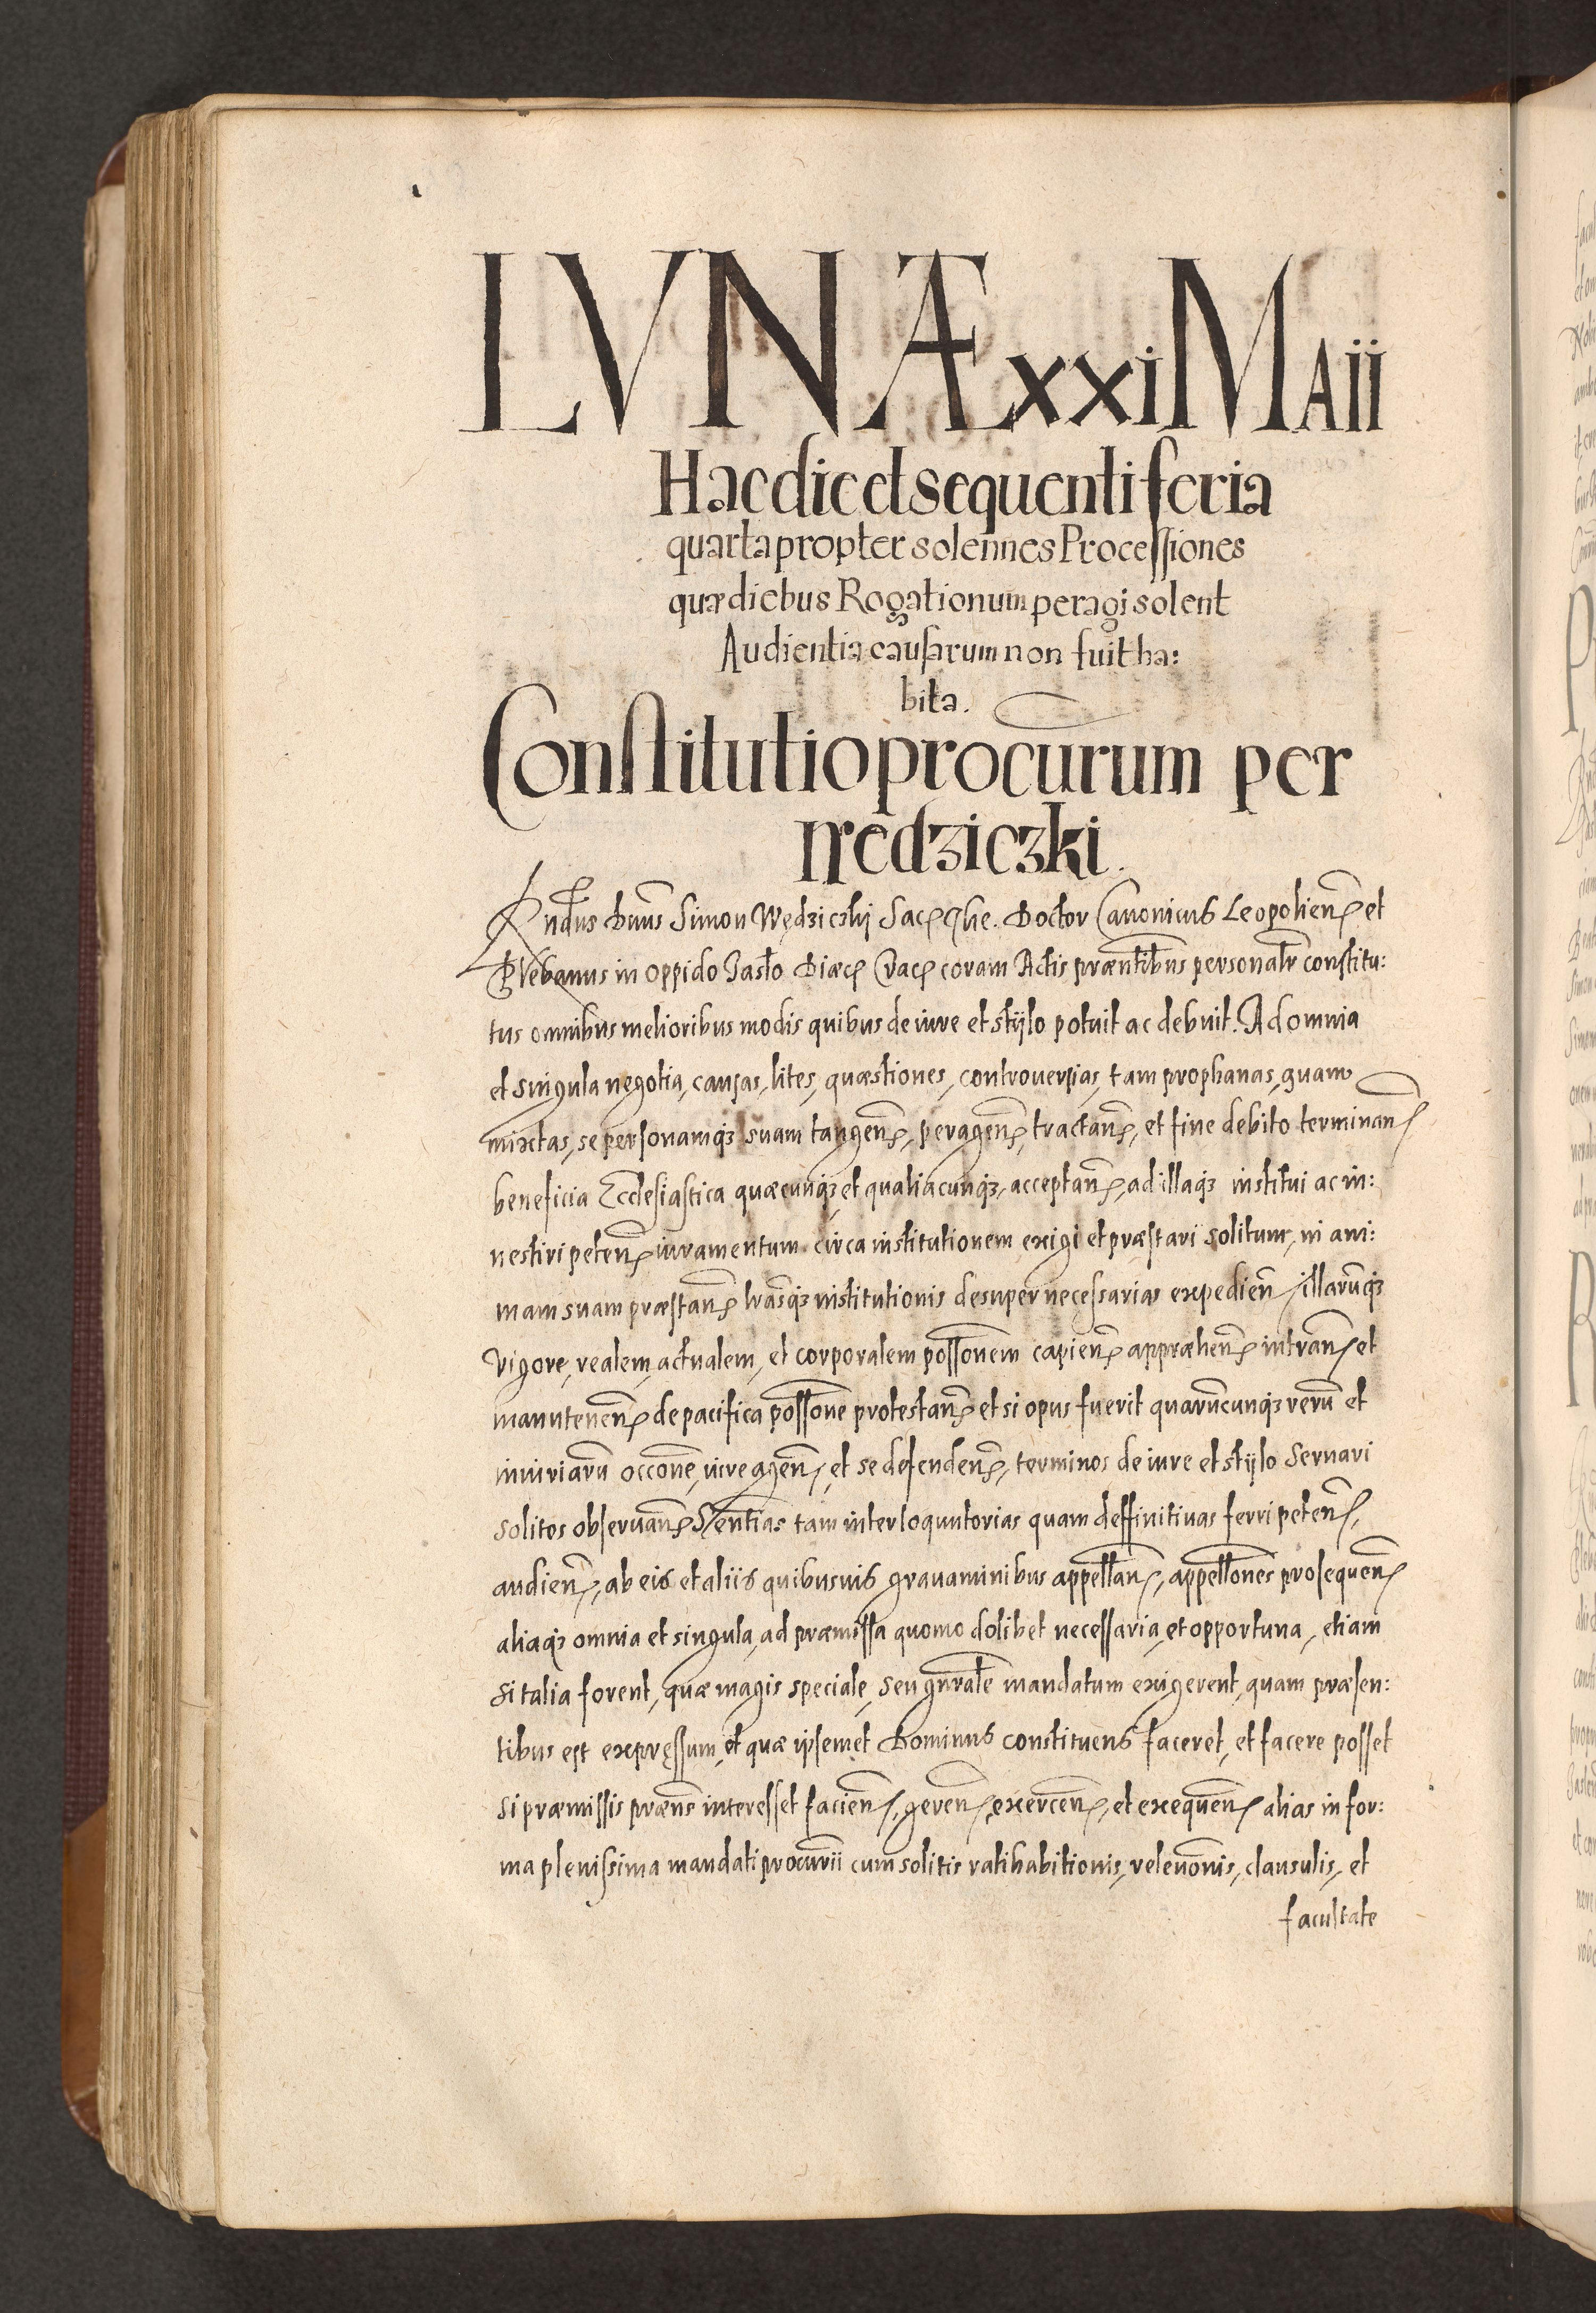 LVNÆ xxi MAii
Hac die et sequenti feria
quarta propter solennes Processiones
quæ diebus Rogationum peragi solent
Audientia causarum non fuit ha:
bita.
Constitutio procurum per
Wedziczki.
Rndus Dnus Simon Wędziczki Sac The. Doctor Canonicus Leopolien et
Plebanus in oppido Jaslo Diæc Crac coram Actis præntibus personalr constitu:
tus omnibus melioribus modis quibus de iure et stylo potuit ac debuit. Ad omnia
et singula negotia, causas, lites, quæstiones, controversias, tam prophanas, quam
mixtas, se personamq suam tangen, peragen, tractan, et fine debito terminan
beneficia Ecclesiastica quæcunq et qualiacunq, acceptan, ad illaq institui ac in:
vestiri peten iuramentum circa institutionem exigi et præstari solitum, in ani:
mam suam præstan lrasq institutionis desuper necessarias expedien illarumq
vigore, realem, actualem, et corporalem possonem capien appræhen intran et
manuten de pacifica possone protestan et si opus fuerit quarumcunq rerum et
iniuriaru occone, iure agen, et se defenden, terminos de iure et stylo servari
solitos observan Sentias tam interloquutorias quam deffinitivas ferri peten,
audien, ab eis et aliis quibusvis gravaminibus appellan, appellones prosequen
aliaq omnia et singula, ad præmissa quomodolibet necessaria, et opportuna, etiam
si talia forent, quæ magis speciale, seu gnrale mandatum exigerent, quam præsen:
tibus est expressum, et quæ ipsemet Dominus constituens faceret, et facere posset
si præmissis præns interesset facien, geren, exercen, et exequen alias in for:
ma plenissima mandati procurii cum solitis ratihabitionis, relevonis, clausulis, et
facultate